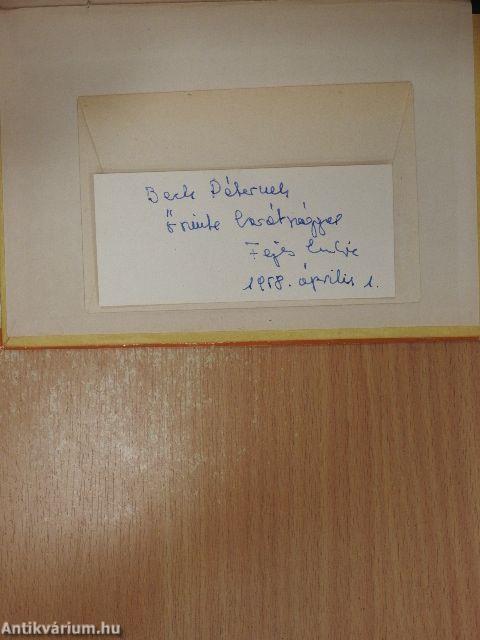 Beck Péternek
Őszinte barátsággal
Fejes Endre
1958. április 1.
Antikvárium.hu